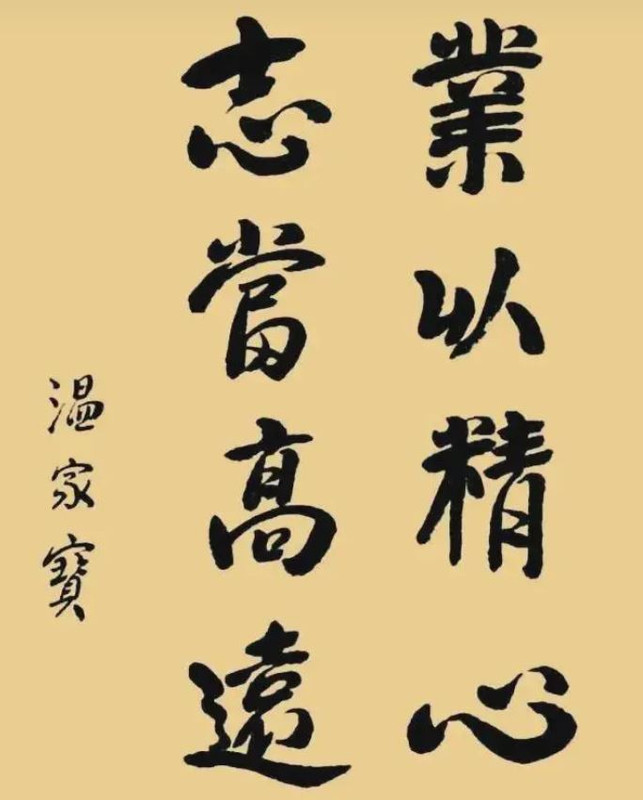 業以精心
志當高遠
溫家寶